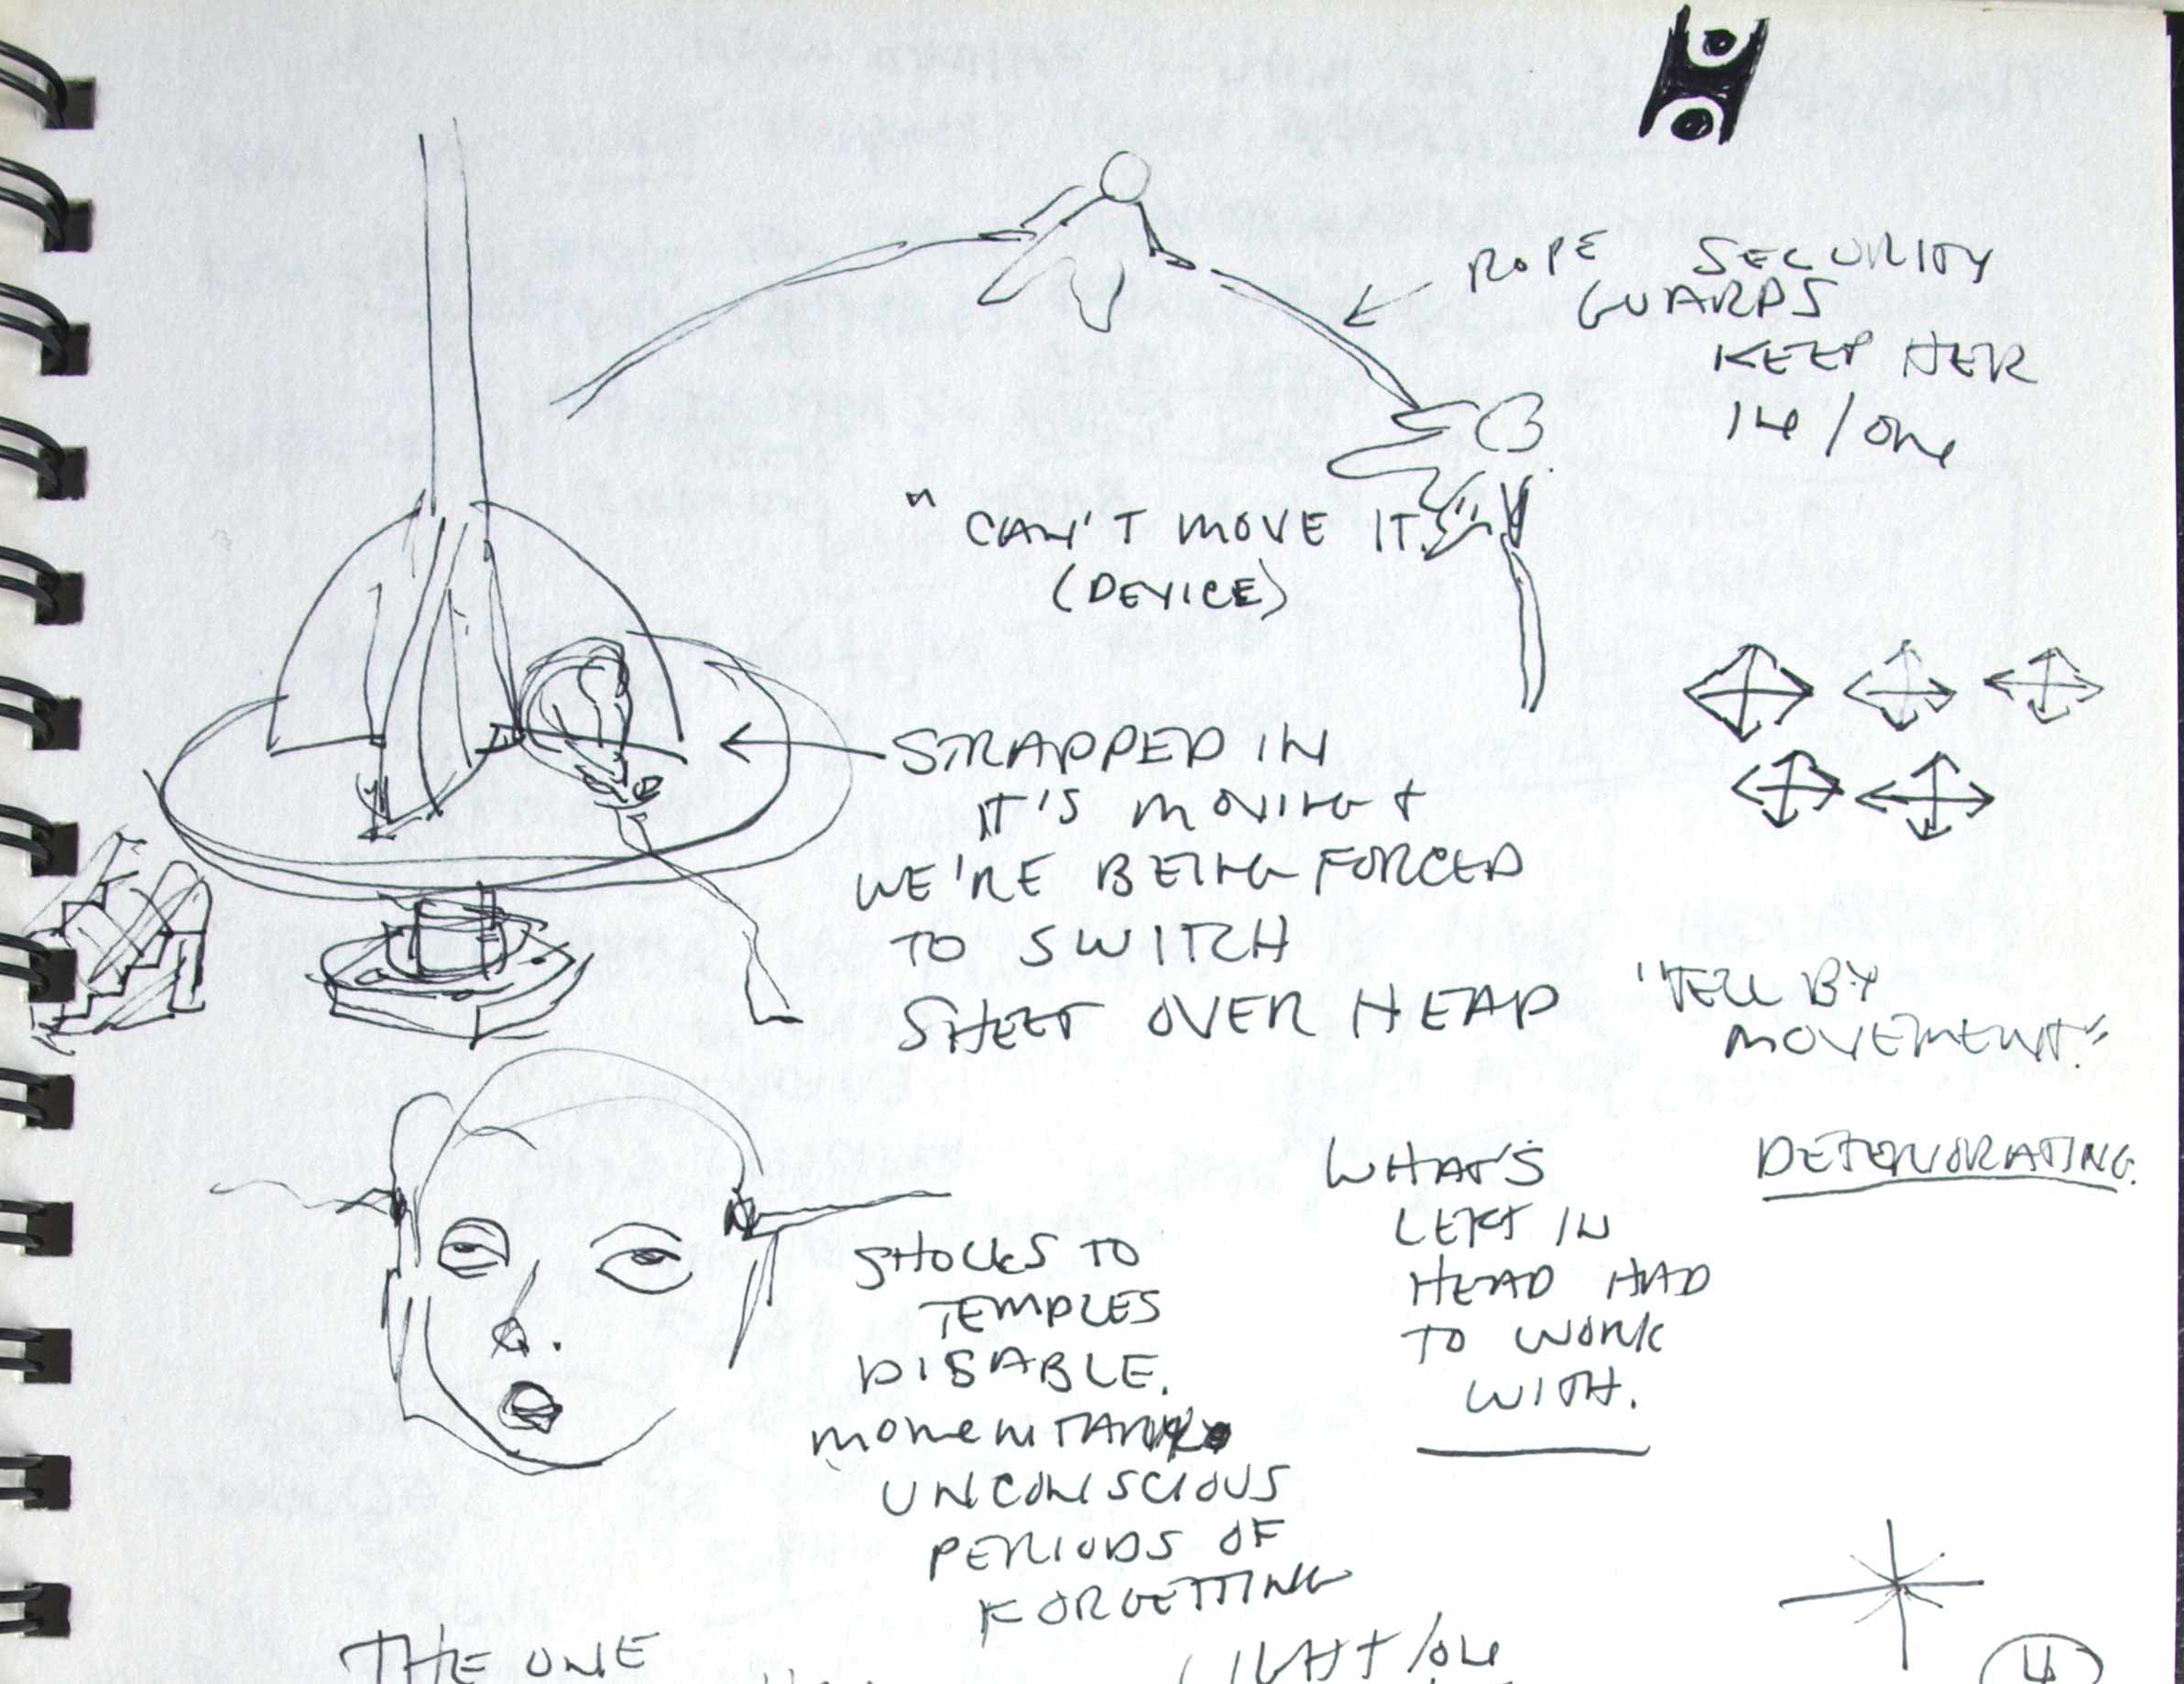 ROPE SECURITY
GUARDS
KEEP HER
IN / ON
"CAN'T MOVE IT."
(DEVICE)
STRAPPED IN
IT'S MOVING +
WE'RE BEING FORCED
TO SWITCH
SHEET OVER HEAD
"TELL BY
MOVEMENT."
DETERIORATING.
WHAT'S
LEFT IN
HEAD HAD
TO WORK
WITH.
SHOCKS TO
TEMPLES
DISABLE.
MOMENTARY
UNCONSCIOUS
PERIODS OF
FORGETTING
THE ONE
4